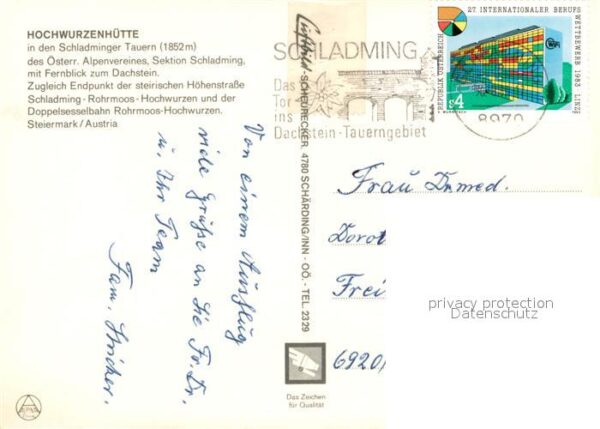 HOCHWURZENHÜTTE
in den Schladminger Tauern (1852 m)
des Österr. Alpenvereines, Sektion Schladming,
mit Fernblick zum Dachstein.
Zugleich Endpunkt der steirischen Höhenstraße
Schladming - Rohrmoos - Hochwurzen und der
Doppelsesselbahn Rohrmoos-Hochwurzen.
Steiermark / Austria
Von einem Ausflug
viele Grüße an die Fr. Dr.
u. Ihr Team
Fam.
Luftbild SCHEURECKER, 4780 SCHÄRDING/INN - OÖ. - TEL. 2329
Das Zeichen
für Qualität
SCHLADMING
Das
Tor
ins
Dachstein-Tauerngebiet
8970
27. INTERNATIONALER BERUFS
WETTBEWERB 1983 LINZ
REPUBLIK ÖSTERREICH
S4
WIFI
Frau Dr. med.
Dorot
Frei
6920
privacy protection
Datenschutz